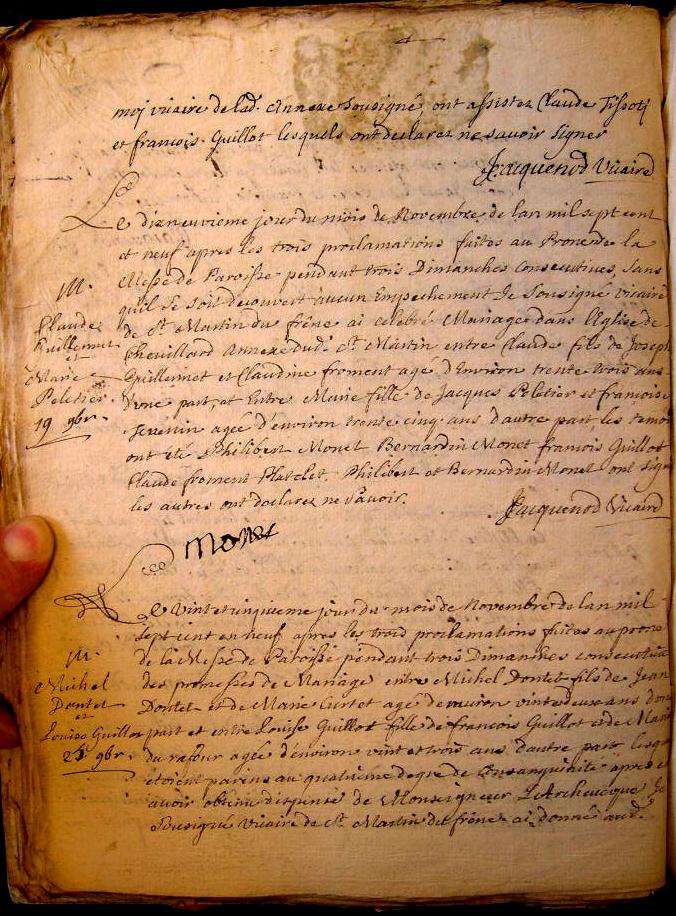 moi vicaire de lad. annexe sousigné ont assistez Claude Tissot
et francois Guillot lesquels ont declarez ne savoir signer
Jacquenod Vicaire
Le dixneuvieme jour du mois de Novembre de lan mil sept cent
et neuf apres les trois proclamations faites au Prone de la
Messe de Paroisse pendant trois Dimanches consecutives, sans
quil se soit decouvert aucun Empechement Je Sousigné vicaire
de St. Martin du frêne ai celebré Mariage dans l'Eglise de
Chevillard annexe dud. St. Martin entre Claude fils de Joseph
Guillermet et Claudine froment agé d'Environ trente trois ans
d'une part, et entre Marie fille de Jacques Peletier et francoise
agée d'environ trente cinq ans d'autre part les temoi
ont eté Philibert Monet Bernardin Monet francois Guillot
Claude froment Platelet. Philibert et Bernardin Monet ont sign
les autres ont declarez ne savoir.
Jacquenod Vicaire
M.
Claude
Guillermet
et
Marie
Peletier
19 9br.
Monet
Le vint et unquieme jour du mois de Novembre de lan mil
sept cent en neuf apres les trois proclamations faites au prone
de la Messe de Paroisse pendant trois Dimanches consecutives
des promesses de Mariage entre Michel Dontet fils de Jean
Dontet et de Marie Curtet agé denviron vint deux ans dune
part et entre Louise Guillot fille de francois Guillot et de Marie
du rafour agée d'environ vint et trois ans dautre part lesqu
etoient parens au quatrieme degre de Consanguinité apres e
avoir obtenu dispense de Monseigneur L'Archeveque Je
Sousigné Vicaire de St. Martin du frêne ai donné aud.
M.
Michel
Dontet
et
Louise Guillot
9br.